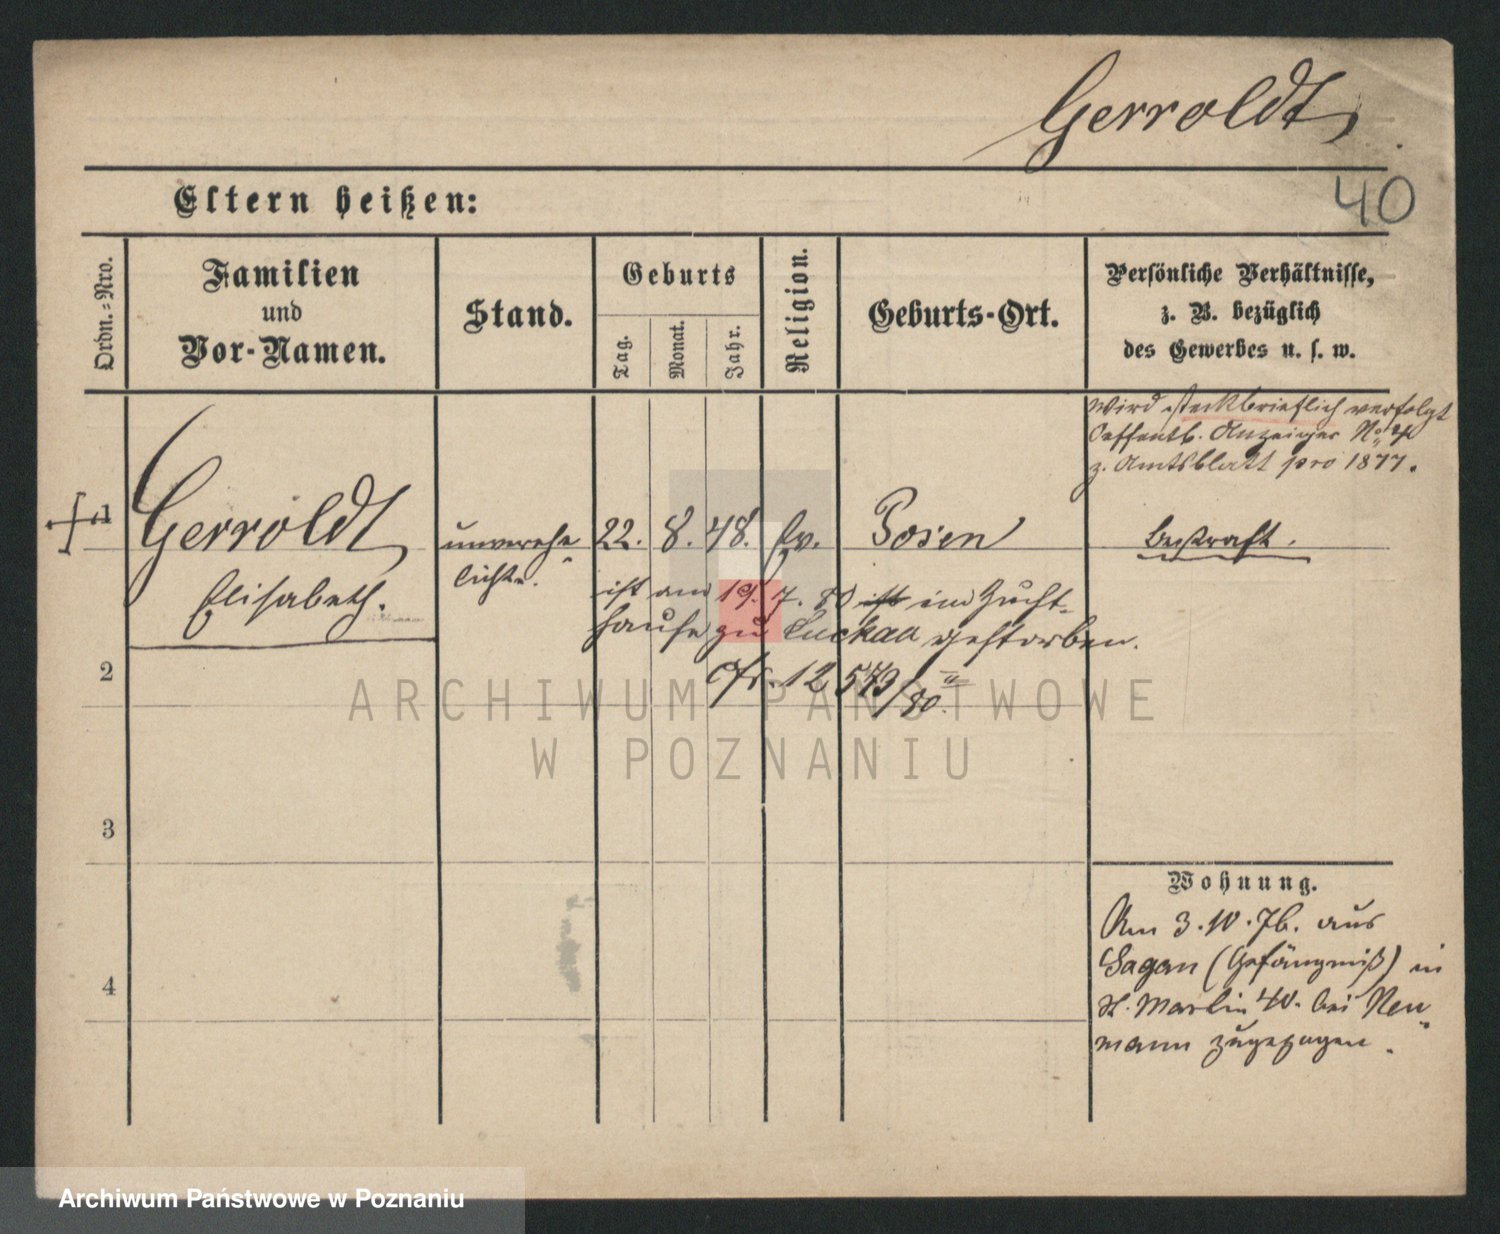 Gerroldt.
40
Eltern heißen:
Ordn.-Nro.
Familien
und
Vor-Namen.
Stand.
Geburts
Tag.
Monat.
Jahr.
Religion.
Geburts-Ort.
Persönliche Verhältnisse,
z. B. bezüglich
des Gewerbes u. s. w.
Wird steckbrieflich verfolgt
Oeffentl. Anzeiger No 4
z. Amtsblatt pro 1877.
1
Gerroldt
Elisabeth.
unverehe-
lichte.
22.
8.
48.
Ev.
Posen
bestraft.
ist am 19. 7. 80 ist im Zucht-
hause zu Luckau gestorben.
12 573/80 II
2
3
4
Wohnung.
Am 3. 10. 76. aus
Sagan (Gefängniß) in
St. Martin 40. bei Neu-
mann zugezogen.
ARCHIWUM PAŃSTWOWE
W POZNANIU
Archiwum Państwowe w Poznaniu